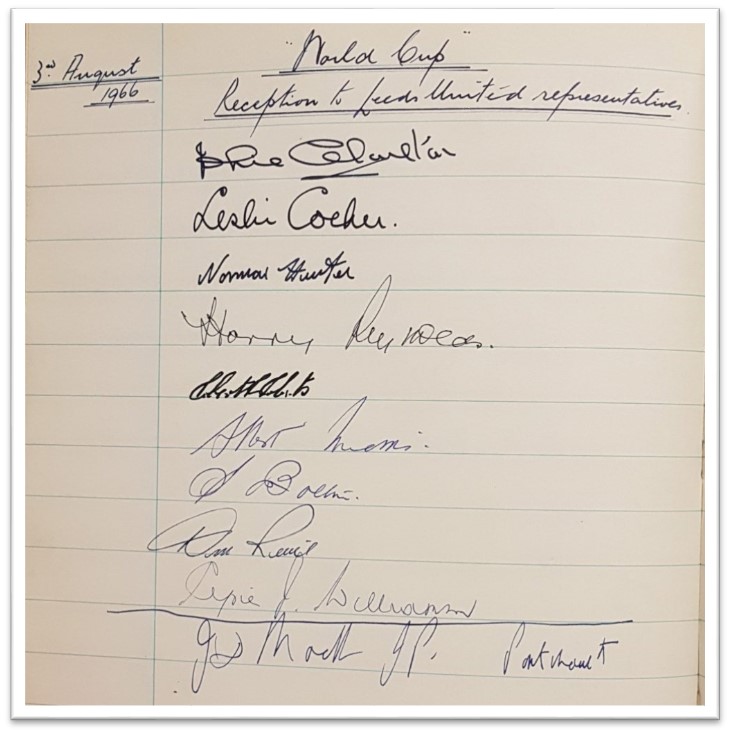 3rd August
1966
"World Cup"
Reception to Leeds United representatives
Charlton
Leslie Cocker.
Norman Hunter
Harry Reynolds.
Albert Morris.
S Bolton.
Don Revie
J. Williamson
JP.